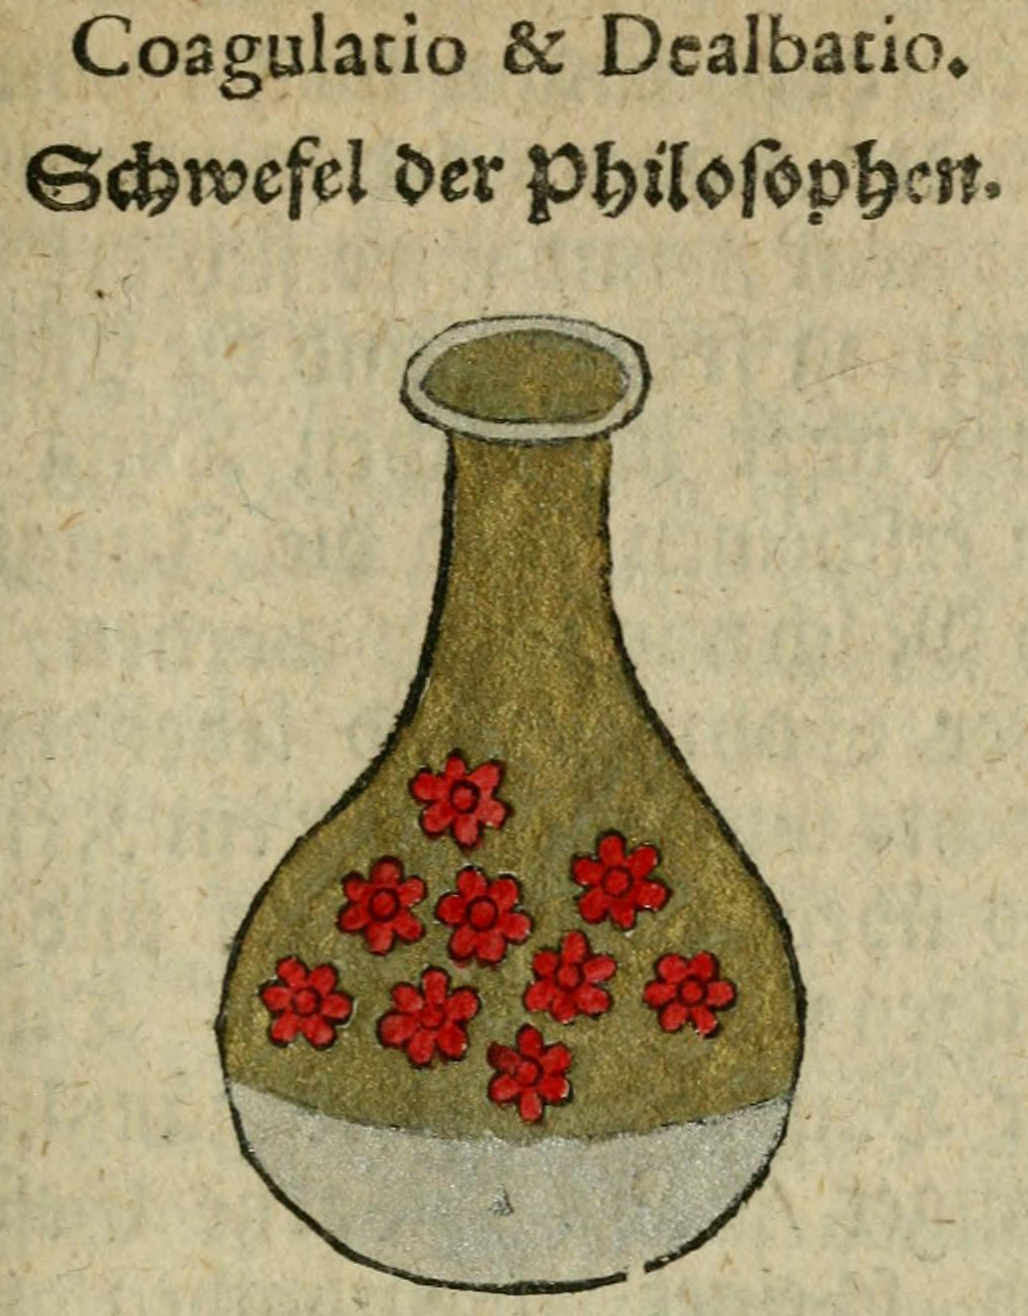 Coagulatio & Dealbatio.
Schwefel der Philosophen.